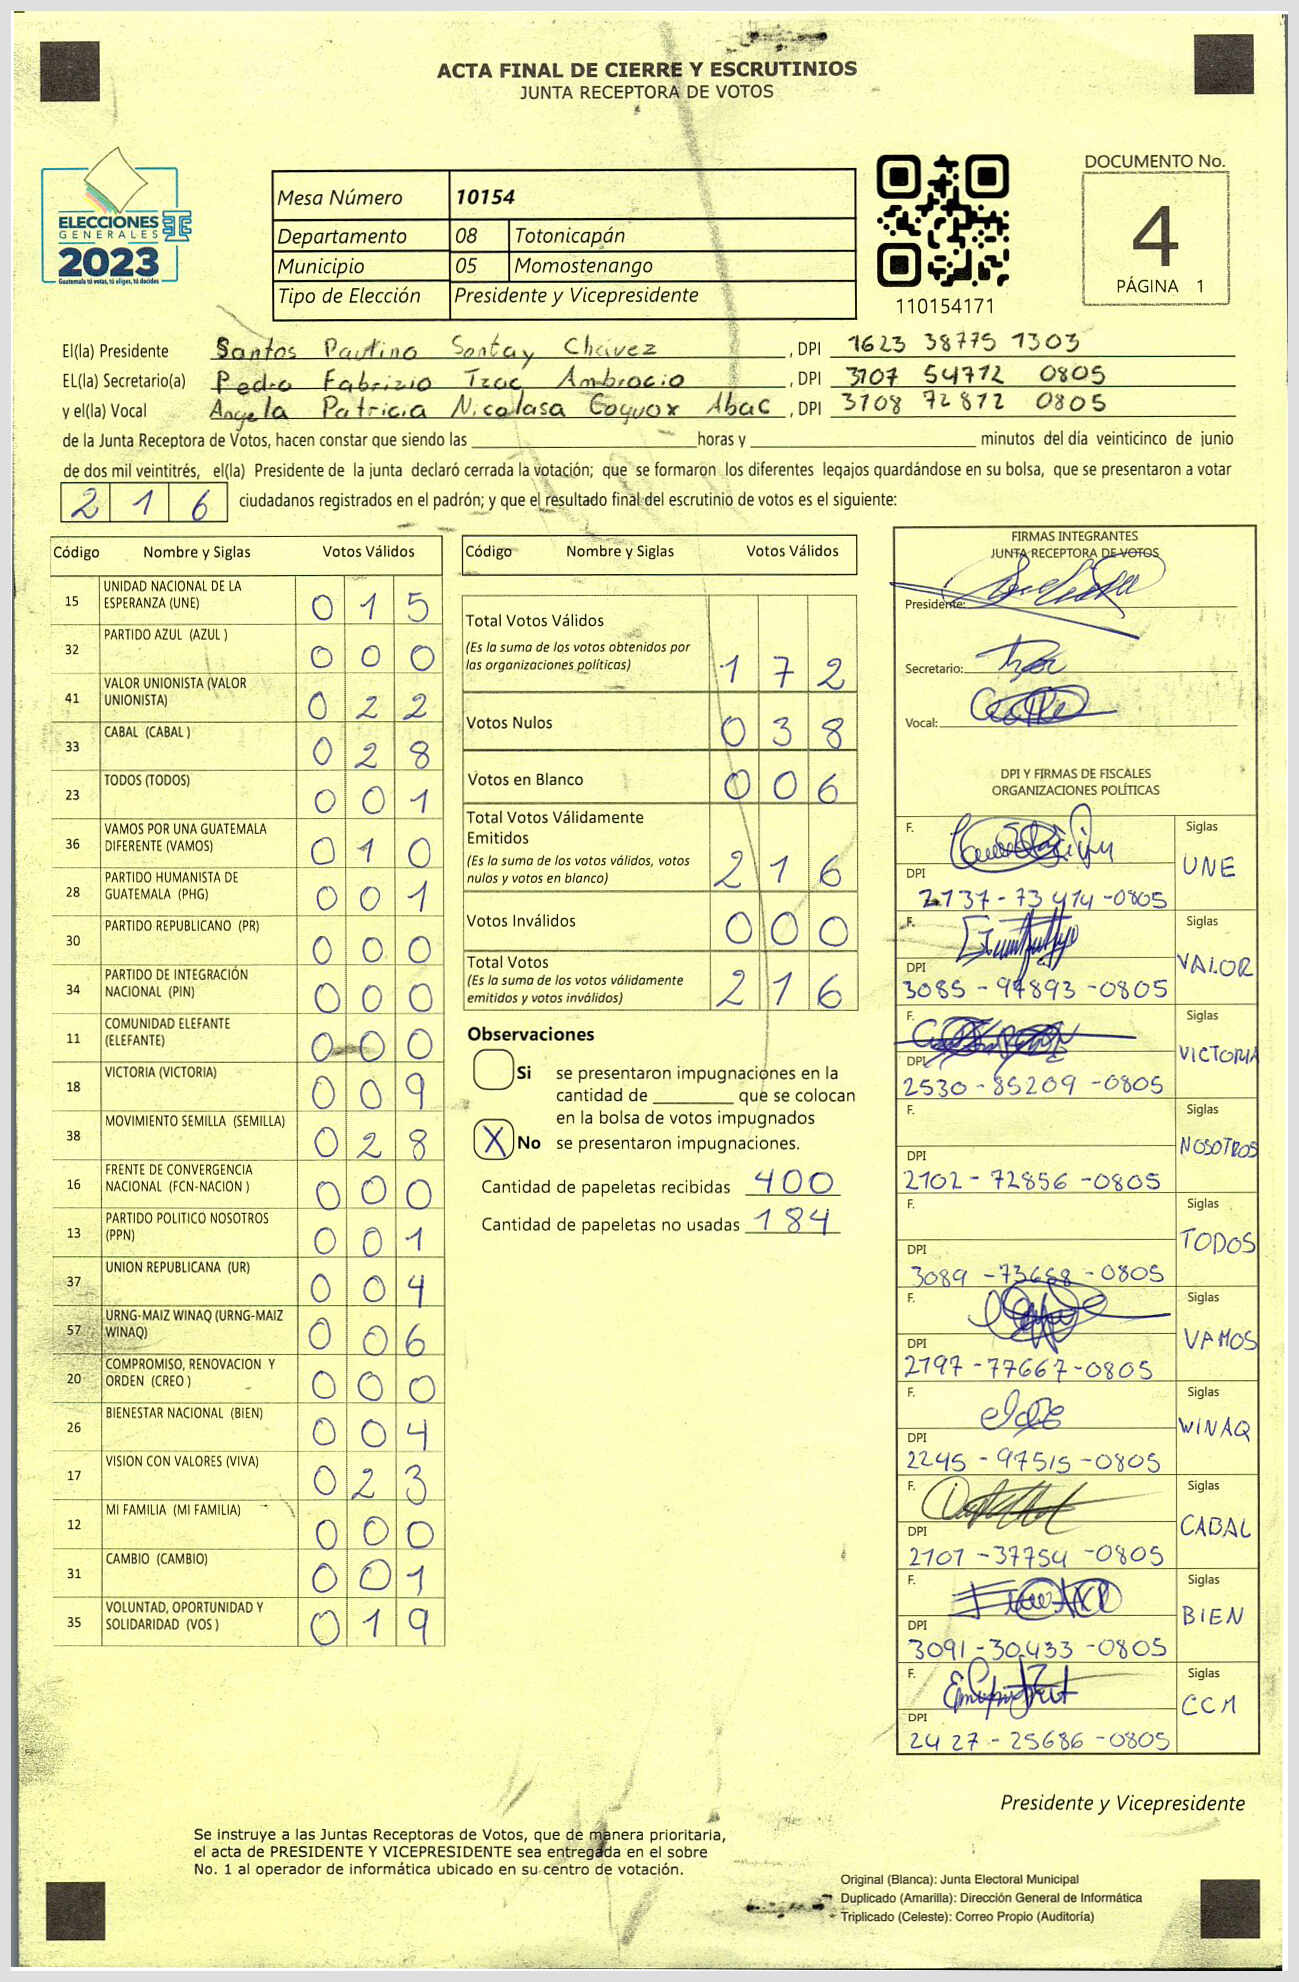 ACTA FINAL DE CIERRE Y ESCRUTINIOS
JUNTA RECEPTORA DE VOTOS
ELECCIONES
GENERALES
2023
Guatemala tú votas, tú eliges, tú decides
TSE
Mesa Número 10154
Departamento 08 Totonicapán
Municipio 05 Momostenango
Tipo de Elección Presidente y Vicepresidente
110154171
DOCUMENTO No.
4
PÁGINA 1
El(la) Presidente Santos Paulino Sontay Chávez, DPI 1623 38775 1303
EL(la) Secretario(a) Pedro Fabrizio Tzoc Ambrocio, DPI 3107 54712 0805
y el(la) Vocal Angela Patricia Nicolasa Coquox Abac, DPI 3108 72872 0805
de la Junta Receptora de Votos, hacen constar que siendo las ____ horas y ____ minutos del día veinticinco de junio
de dos mil veintitrés, el(la) Presidente de la junta declaró cerrada la votación; que se formaron los diferentes legajos guardándose en su bolsa, que se presentaron a votar
216 ciudadanos registrados en el padrón; y que el resultado final del escrutinio de votos es el siguiente:
Código Nombre y Siglas Votos Válidos
15 UNIDAD NACIONAL DE LA ESPERANZA (UNE) 015
32 PARTIDO AZUL (AZUL ) 000
41 VALOR UNIONISTA (VALOR UNIONISTA) 022
33 CABAL (CABAL ) 028
23 TODOS (TODOS) 001
36 VAMOS POR UNA GUATEMALA DIFERENTE (VAMOS) 010
28 PARTIDO HUMANISTA DE GUATEMALA (PHG) 001
30 PARTIDO REPUBLICANO (PR) 000
34 PARTIDO DE INTEGRACIÓN NACIONAL (PIN) 000
11 COMUNIDAD ELEFANTE (ELEFANTE) 000
18 VICTORIA (VICTORIA) 009
38 MOVIMIENTO SEMILLA (SEMILLA) 028
16 FRENTE DE CONVERGENCIA NACIONAL (FCN-NACION ) 000
13 PARTIDO POLITICO NOSOTROS (PPN) 001
37 UNION REPUBLICANA (UR) 004
57 URNG-MAIZ WINAQ (URNG-MAIZ WINAQ) 006
20 COMPROMISO, RENOVACION Y ORDEN (CREO ) 000
26 BIENESTAR NACIONAL (BIEN) 004
17 VISION CON VALORES (VIVA) 023
12 MI FAMILIA (MI FAMILIA) 000
31 CAMBIO (CAMBIO) 001
35 VOLUNTAD, OPORTUNIDAD Y SOLIDARIDAD (VOS ) 019
Código Nombre y Siglas Votos Válidos
Total Votos Válidos 172
(Es la suma de los votos obtenidos por
las organizaciones políticas)
Votos Nulos 038
Votos en Blanco 006
Total Votos Válidamente
Emitidos 216
(Es la suma de los votos válidos, votos
nulos y votos en blanco)
Votos Inválidos 000
Total Votos 216
(Es la suma de los votos válidamente
emitidos y votos inválidos)
Observaciones
Si se presentaron impugnaciones en la
cantidad de ____ que se colocan
en la bolsa de votos impugnados
X No se presentaron impugnaciones.
Cantidad de papeletas recibidas 400
Cantidad de papeletas no usadas 184
FIRMAS INTEGRANTES
JUNTA RECEPTORA DE VOTOS
Presidente:
Secretario:
Vocal:
DPI Y FIRMAS DE FISCALES
ORGANIZACIONES POLÍTICAS
F. Siglas
UNE
DPI
2737-73414-0805
F. Siglas
VALOR
DPI
3085-97893-0805
F. Siglas
VICTORIA
DPI
2530-85209-0805
F. Siglas
NOSOTROS
DPI
2102-72856-0805
F. Siglas
TODOS
DPI
3089-73658-0805
F. Siglas
VAMOS
DPI
2197-77667-0805
F. Siglas
WINAQ
DPI
2245-97515-0805
F. Siglas
CABAL
DPI
2101-37754-0805
F. Siglas
BIEN
DPI
3091-30433-0805
F. Siglas
CCM
DPI
2427-25686-0805
Presidente y Vicepresidente
Se instruye a las Juntas Receptoras de Votos, que de manera prioritaria,
el acta de PRESIDENTE Y VICEPRESIDENTE sea entregada en el sobre
No. 1 al operador de informática ubicado en su centro de votación.
Original (Blanca): Junta Electoral Municipal
Duplicado (Amarilla): Dirección General de Informática
Triplicado (Celeste): Correo Propio (Auditoría)